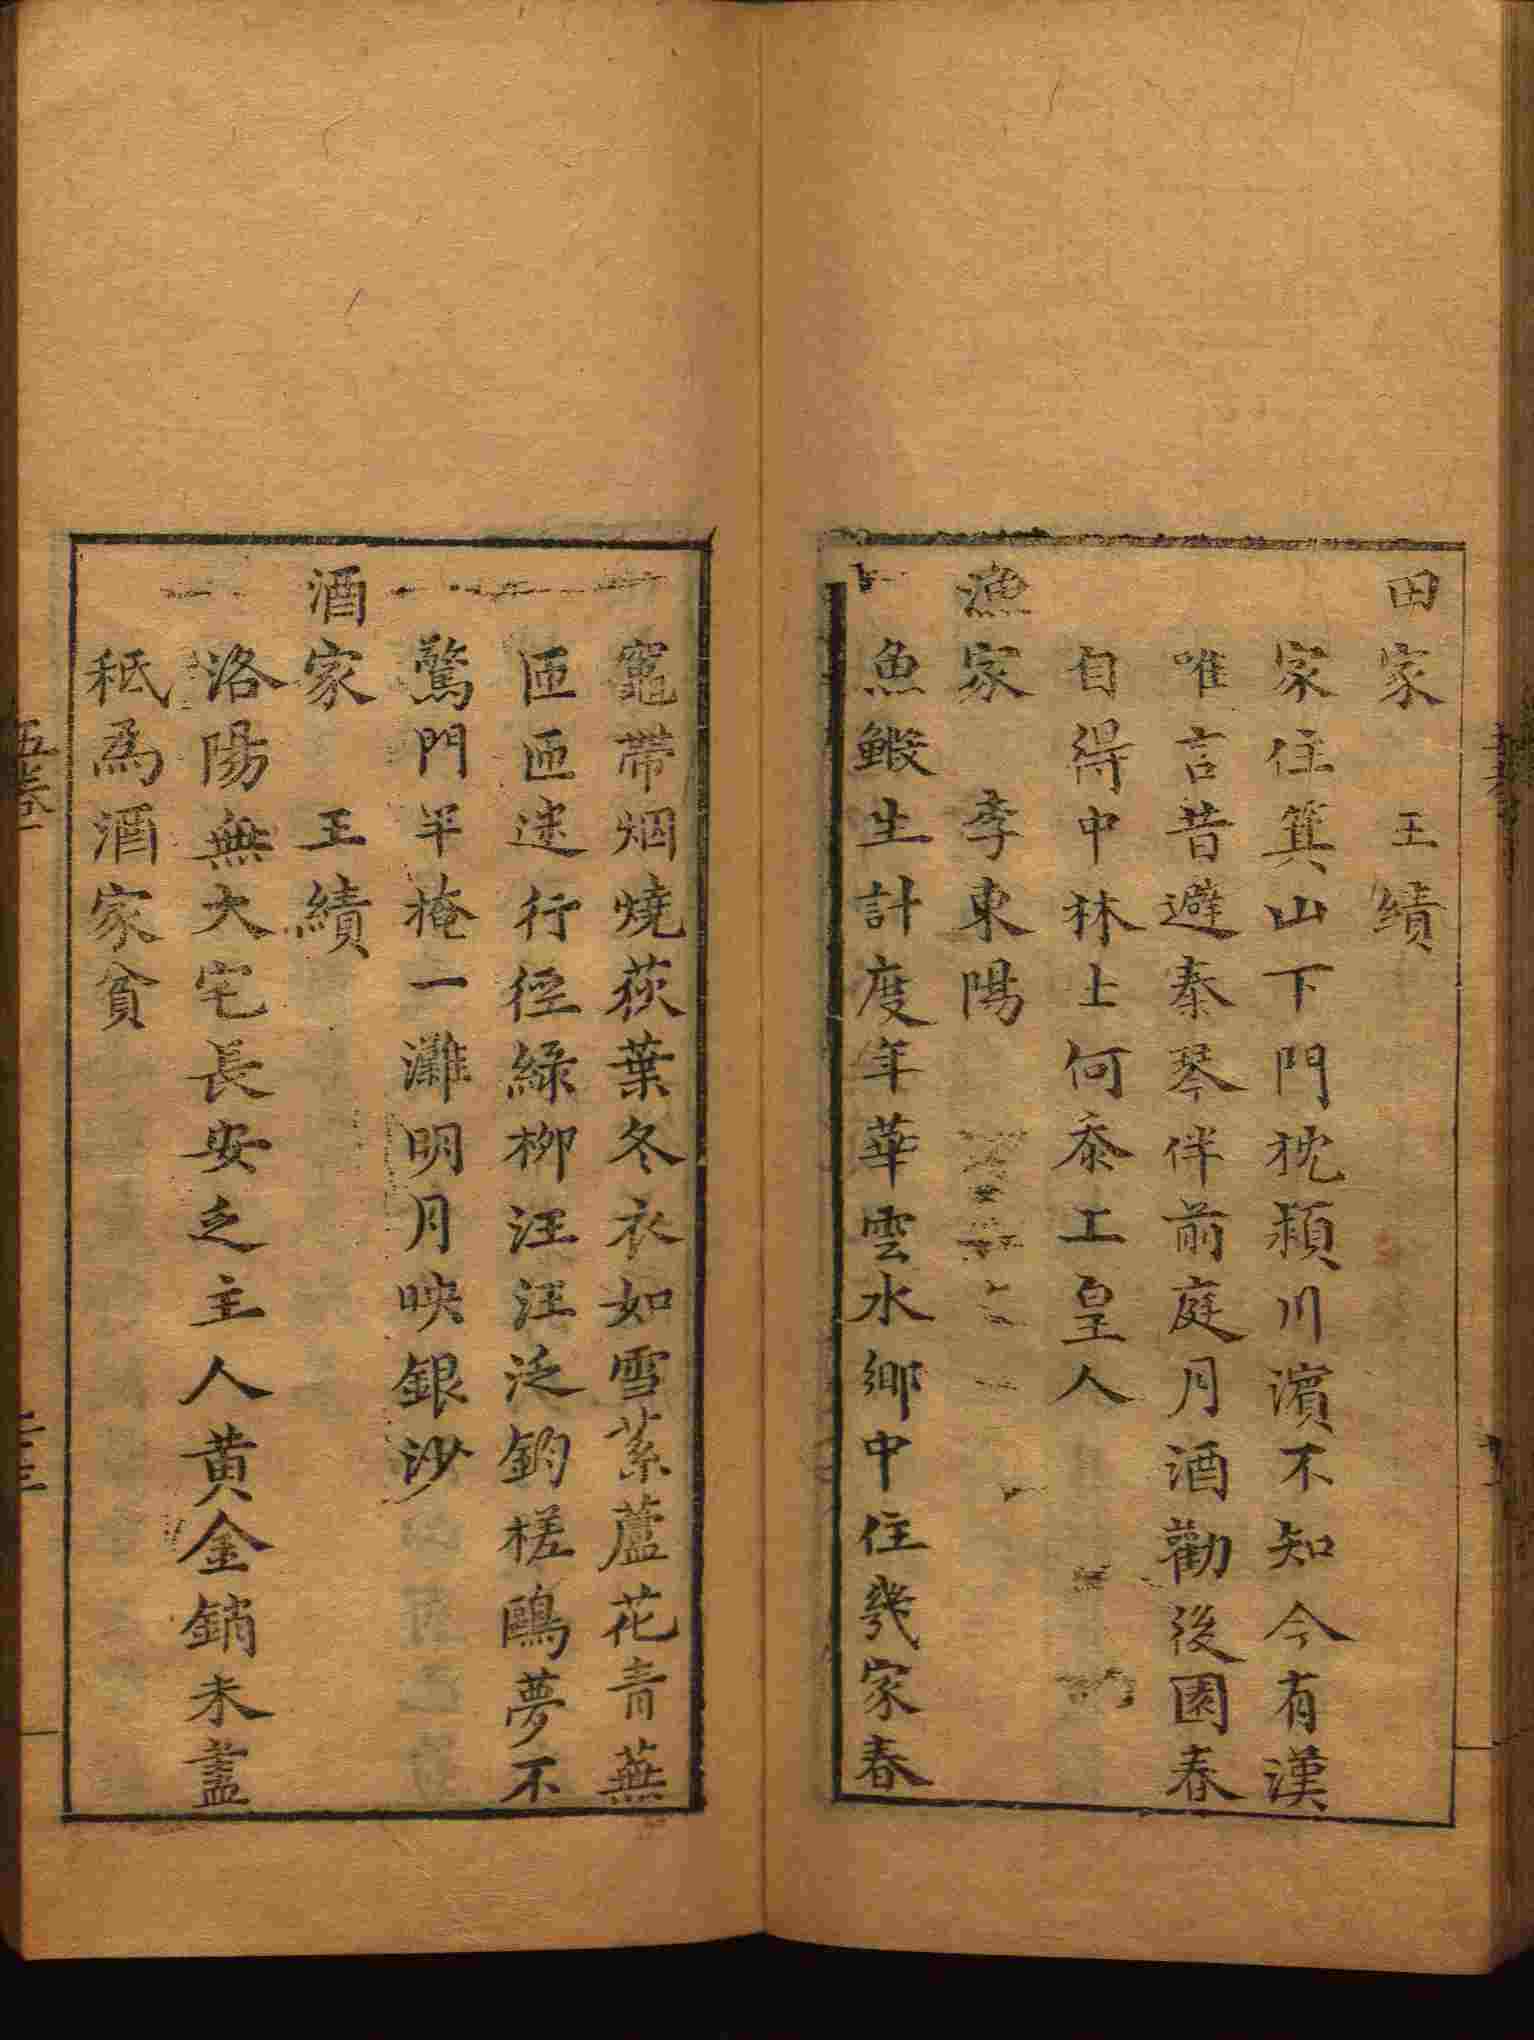 田家　王績
家住箕山下門枕潁川濱不知今有漢
唯言昔避秦琴伴前庭月酒勸後園春
自得中林上何忝工皇人
漁家　李東陽
魚鰕生計度年華雲水鄉中住幾家春
竈帶烟燒荻葉冬衣如雪絮蘆花青蕪
匝匝迷行徑綠柳汪汪泛釣槎鷗夢不
驚門半掩一灘明月映銀沙
酒家　王績
洛陽無大宅長安乏主人黄金銷未盡
秖為酒家貧
五卷